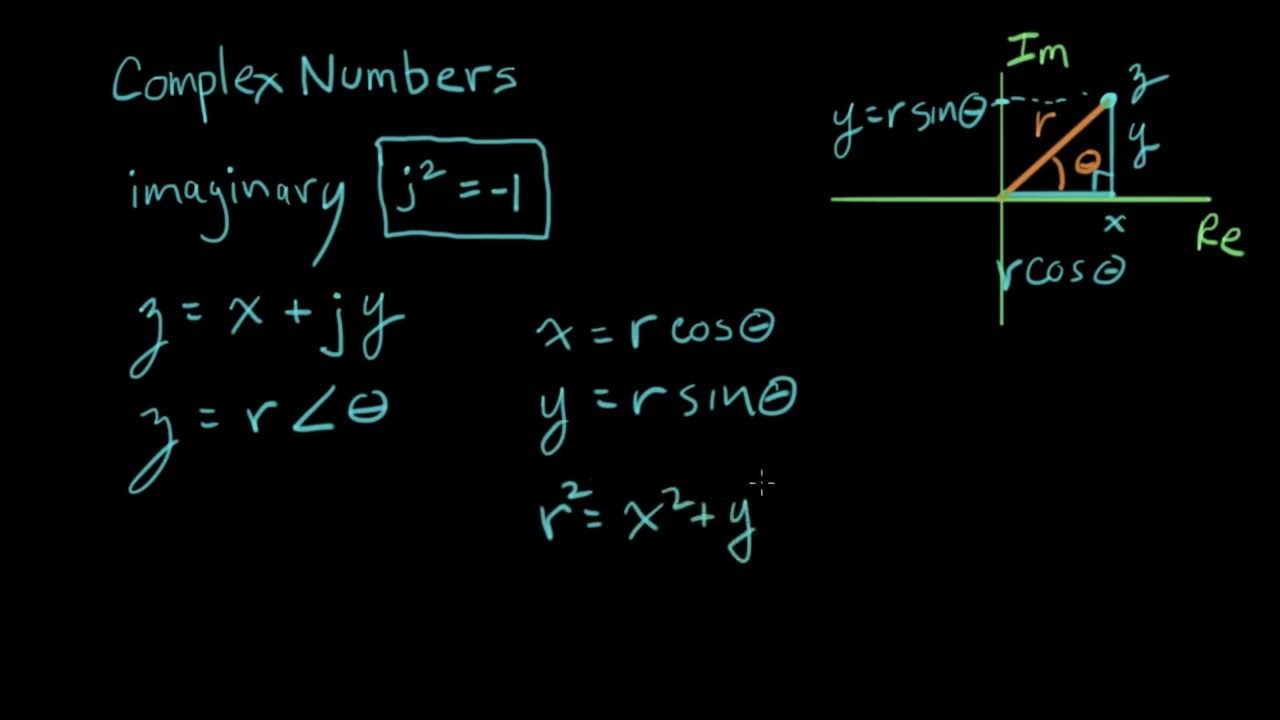 Complex Numbers
imaginary j² = -1
z = x + jy
z = r∠θ
x = r cosθ
y = r sinθ
r² = x² + y
Im
y = r sinθ
r
θ
z
y
x
Re
r cosθ